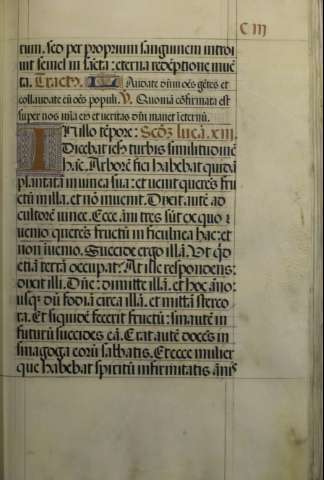 C III
tum. sed per proprium sanguinem introi
uit semel in sc̄ta: eterna redēptione inuē
ta. Tractꝰ. Laudate dn̄m oēs gētes et
collaudate eū oēs populi. V. Quoniā cōfirmata est
super nos mīa eiꝰ et ueritas dn̄i manet ī eternū.
In illo tēpore: Secūdū lucā. xiii.
Dicebat iesꝰ turbis similitudinē
hāc. Arborē fici habebat quidā
plantatā in uinea sua: et uenit querēs fru
ctū in illa. et nō inuenit. Dixit autē ad
cultorē uinee. Ecce ānī tres sūt ex quo
uenio querēs fructū in ficulnea hac: et
non inuenio. Succide ergo illā. Ut qd̄
etiā terrā occupat? At ille respondens:
dixit illi. Dn̄e: dimitte illā. et hoc āno:
usq; dū fodiā circa illā. et mittā sterco
ra. Et siquidē fecerit fructū: sin autē in
futurū succides eā. Erat autē docēs in
sinagoga eorū sabbatis. Et ecce mulier
que habebat spiritū infirmitatis ānis